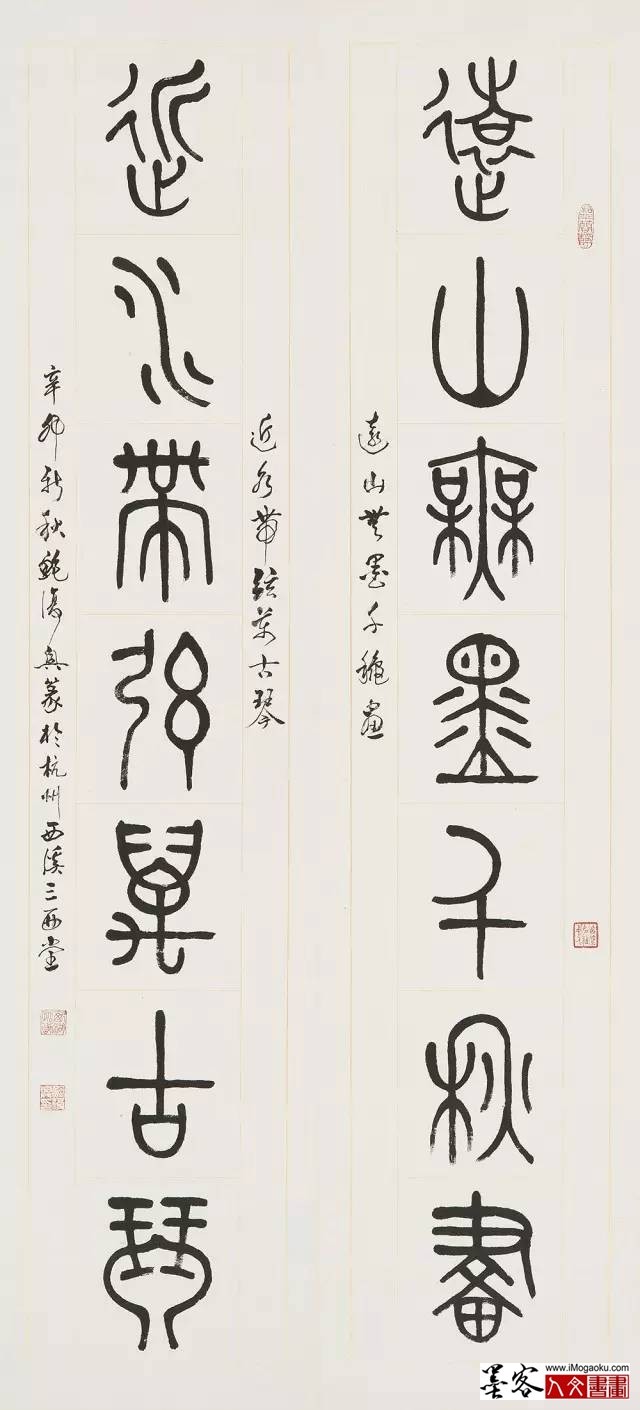 遠山無墨千秋畫
遠山無墨千穐畫
近水帶弦萬古琴
近水帶弦萬古琴
辛卯新秋鮑復興篆於杭州西溪三西堂
www.iMogaoku.com
墨客
人文書畫